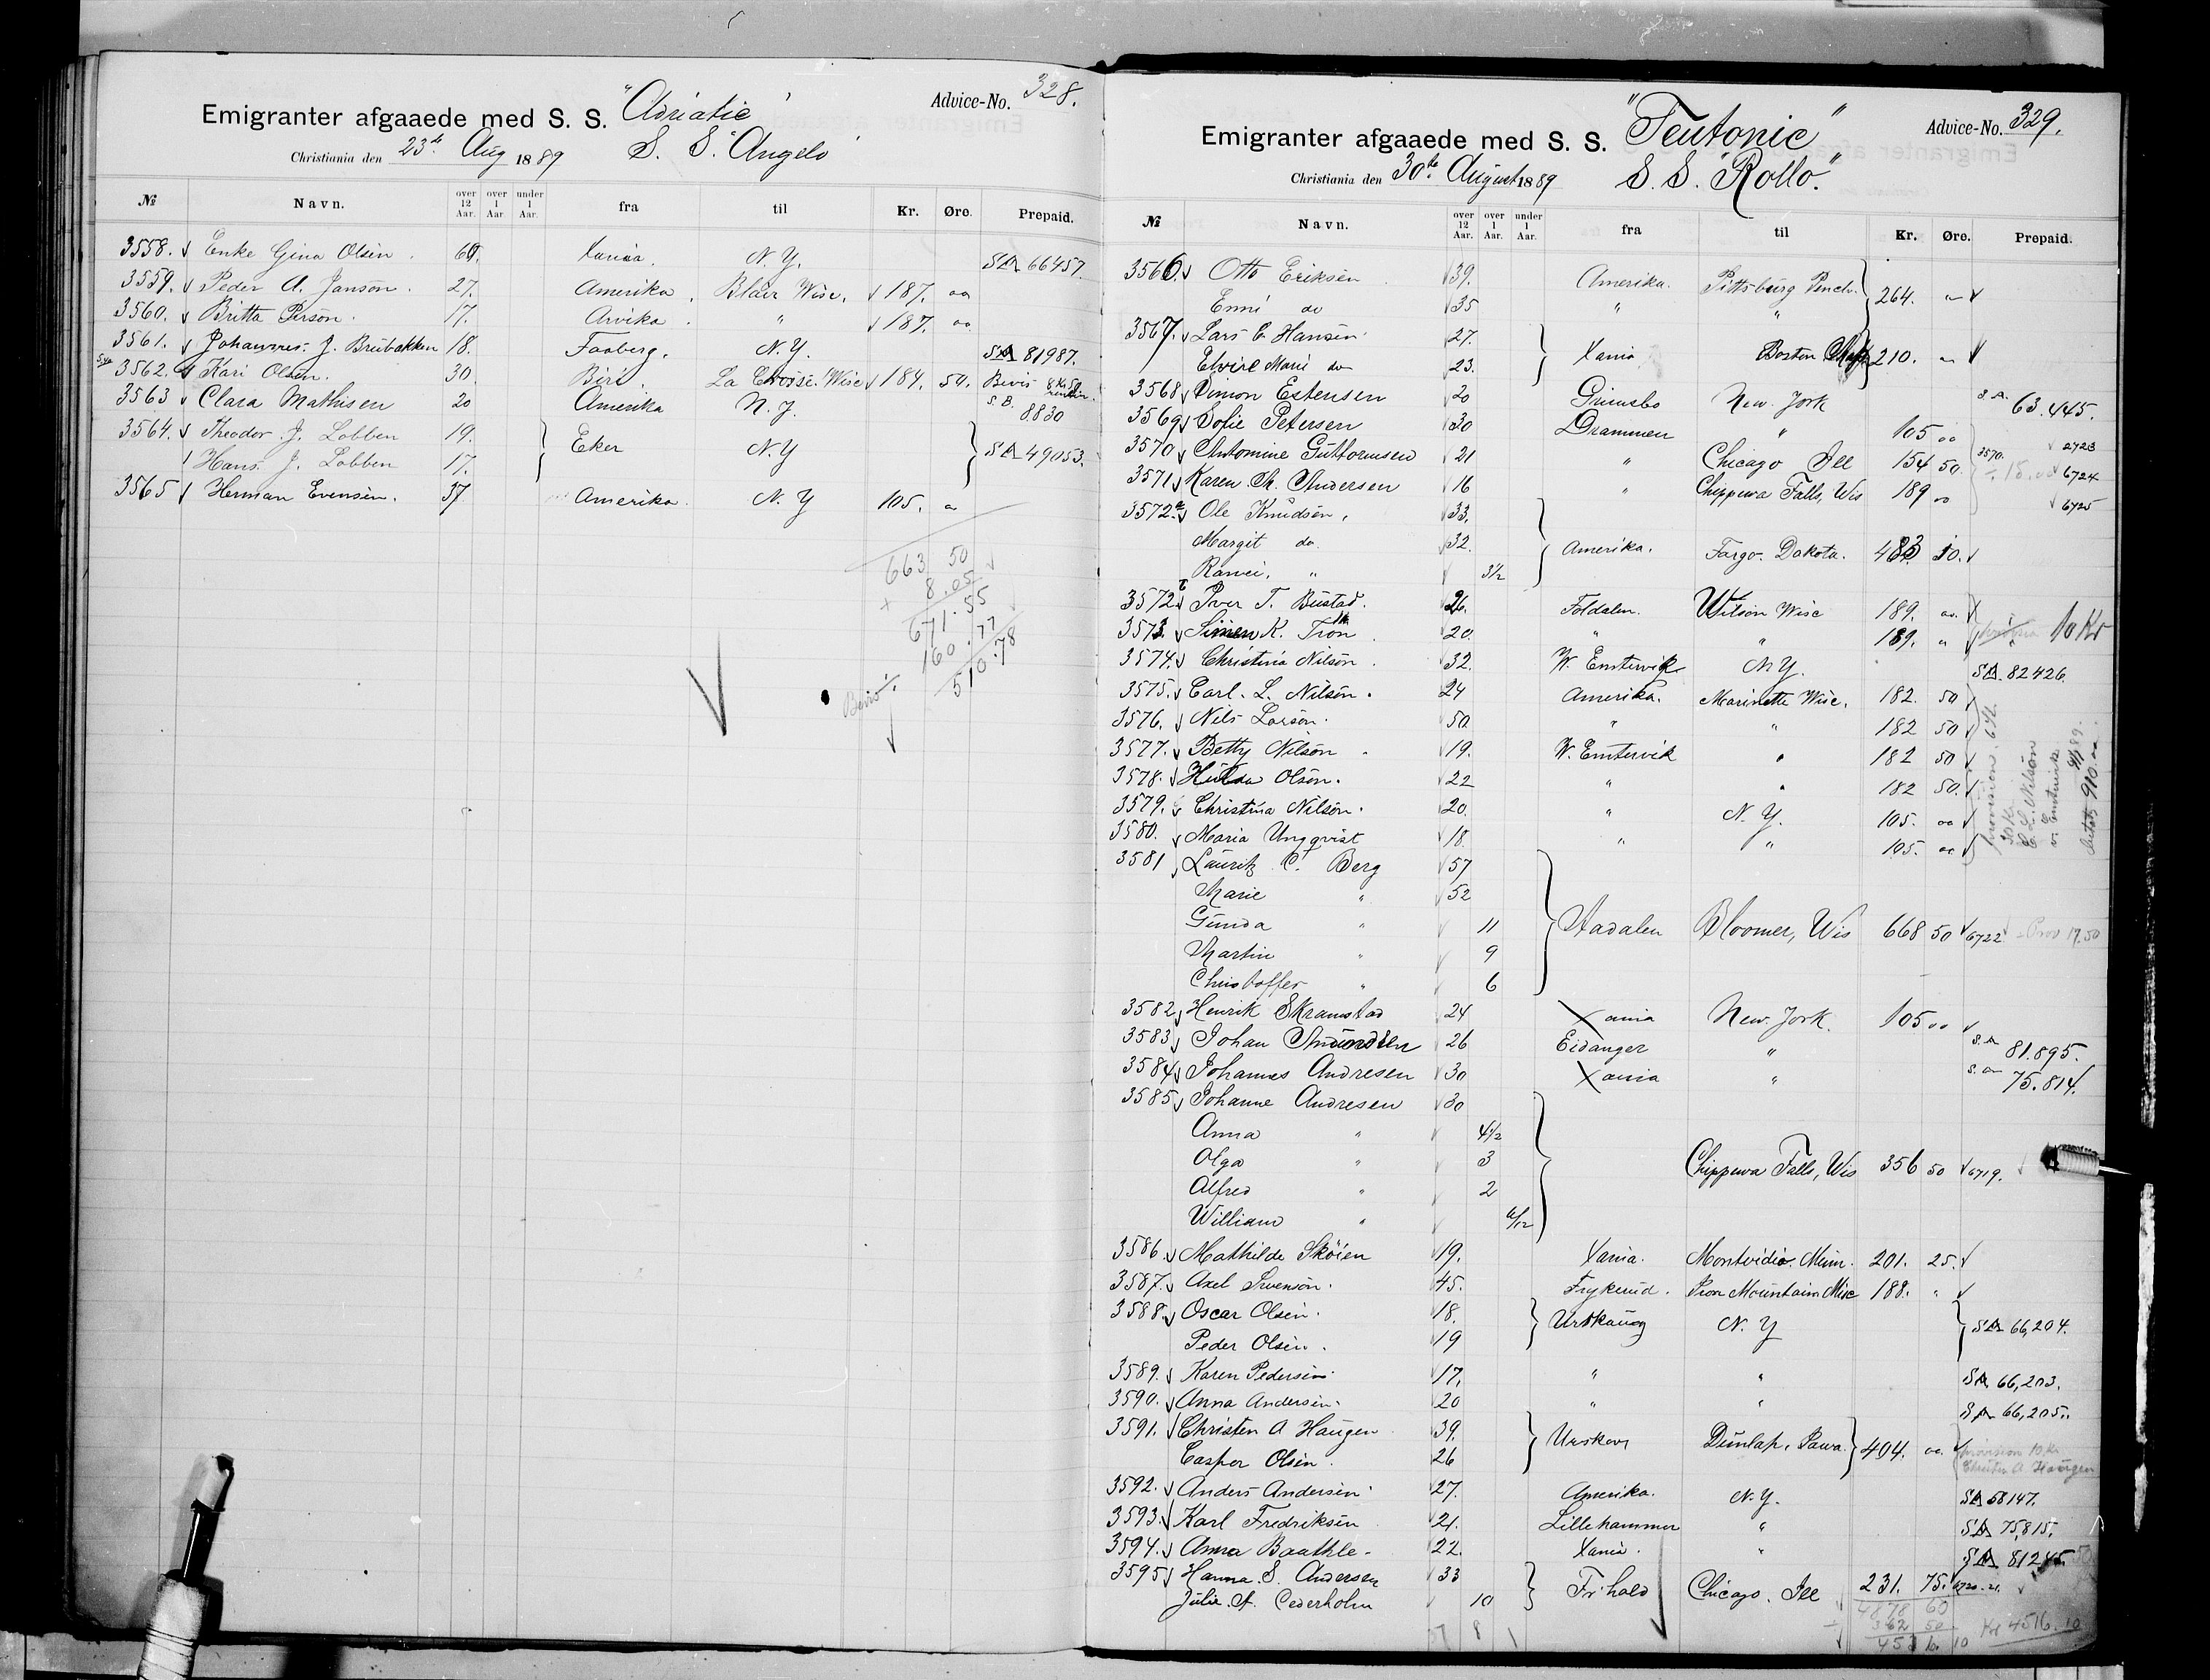 Advice-No. 328.
Emigranter afgaaede med S. S. "Adriatic"
Christiania den 23de Aug 1889 S. S. "Angelo"
№ Navn. over 12 Aar. over 1 Aar. under 1 Aar. fra til Kr. Øre. Prepaid.
3558. Enke Gina Olsen. 60. Xania. N.Y. SA 66457.
3559. Peder A. Janson. 27. Amerika. Blair Wisc. 187. oo
3560. Britta Person. 17. Arvika. " 187. oo
3561. Johannes. J. Brubakken 18. Faaberg. N.Y. SA 81987.
3562. Kari Olsen. 30. Biri. La Crosse. Wisc 184. 50. Bevis 8 Kr 50
3563 Clara Mathisen 20 Amerika N.Y. S.B. 8830
3564. Theodor. J. Lobben 19. Eker N.Y SA 49053.
Hans. J. Lobben 17.
3565 Herman Evensen. 37. Amerika. N.Y 105. oo
663 50
+ 8.05
671.55
160.77
510.78
Advice-No. 329.
Emigranter afgaaede med S. S. "Teutonic"
Christiania den 30te August 1889 S. S. "Rollo."
№ Navn. over 12 Aar. over 1 Aar. under 1 Aar. fra til Kr. Øre. Prepaid.
3566. Otto Eriksen 39. Amerika. Pittsburg 264. "
Enni do 35 " "
3567. Lars C Hansen 27. Xania Boston 210. "
Elvire Marie do 23.
3568 Simon Estensen 20 Grimsbo New. York S.A. 63.445.
3569 Sofie Petersen 30 Drammen " 105 oo 2723
3570 Antomine Guttormsen 21 " Chicago Ill 154 50. 3570. 6724
3571 Karen A. Andersen 16 " Chippewa Falls, Wis 189 oo 6725
3572a Ole Knudsen, 33. Amerika. Fargo. Dakota. 483 50.
Margit do. 32.
Ranei, " 3½
3572b Iver T. Bustad. 26. Foldalen. Wilson Wisc 189. oo. 10 Kr
3573. Simen K. Tron 20. " " 189. "
3574. Christina Nilson. 32. W. Emtervik N.Y. SA. 82426.
3575. Carl. L. Nilson. 24 Amerika. Marinette Wisc. 182. 50
3576. Nils Larson. 50. " " 182 50
3577. Betty Nilson 19. W. Emtervik " 182 50
3578. Hulda Olson. 22 " " 182 50.
3579. Christina Nilson. 20. " N.Y. 105. oo
3580. Maria Ungqvist 18. " " 105. oo
provision
C. L. Nilson
3581 Lauritz C. Berg 57 Aadalen Bloomer, Wis 668 50 6722 Prov 17.50
Marie " 52
Gunda " 11
Martin " 9
Christoffer " 6
3582 Henrik Skramstad 24 Xania New. York. 105 oo
3583 Johan Amundsen 26 Eidanger " S.A 81.895.
3584 Johannes Andresen 30 Xania " S.A 75.814.
3585 Johanne Andresen 30 Chippewa Falls, Wis 356 50 6719.
Anna " 4½
Olga " 3
Alfred " 2
William "
3586. Mathilde Skøien 19. Xania. Montevidio. Minn. 201. 25.
3587. Axel Svenson. 45. Frykerud. Iron Mountain Misc 188. "
3588. Oscar Olsen. 18. Urskaug N.Y SA 66,204.
Peder Olsen. 19
3589. Karen Pedersen. 17. " " SA 66,203.
3590. Anna Andersen. 20 " " SA 66,205.
3591. Christen A Haugen 39. Urskoug Dunlap. Iowa. 404. oo. provision 10 Kr.
Casper Olsen. 26 Christen A Haugen
3592. Anders Andersen 27. Amerika. N.Y. SA 58147.
3593. Karl Fredriksen 21. Lillehammer " SA 75,815.
3594. Anna Baathle 22. Xania. " SA 81245.
3595 Hanna. S. Andersen 33 Fr hald Chicago. Ill 231. 75. 6720-21.
Julie. A. Cederholm 10
4878 60
362 50
4516.10